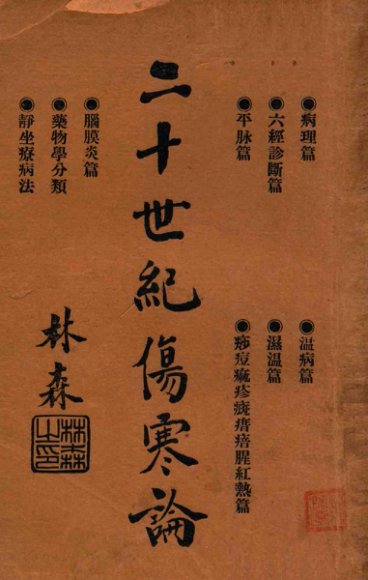 ●病理篇
●六經診斷篇
●平脉篇
●温病篇
●濕温篇
●痧痘痲疹腥紅熱篇
二十世紀傷寒論
●腦膜炎篇
●藥物學分類
●靜坐療病法
林森
林森之印